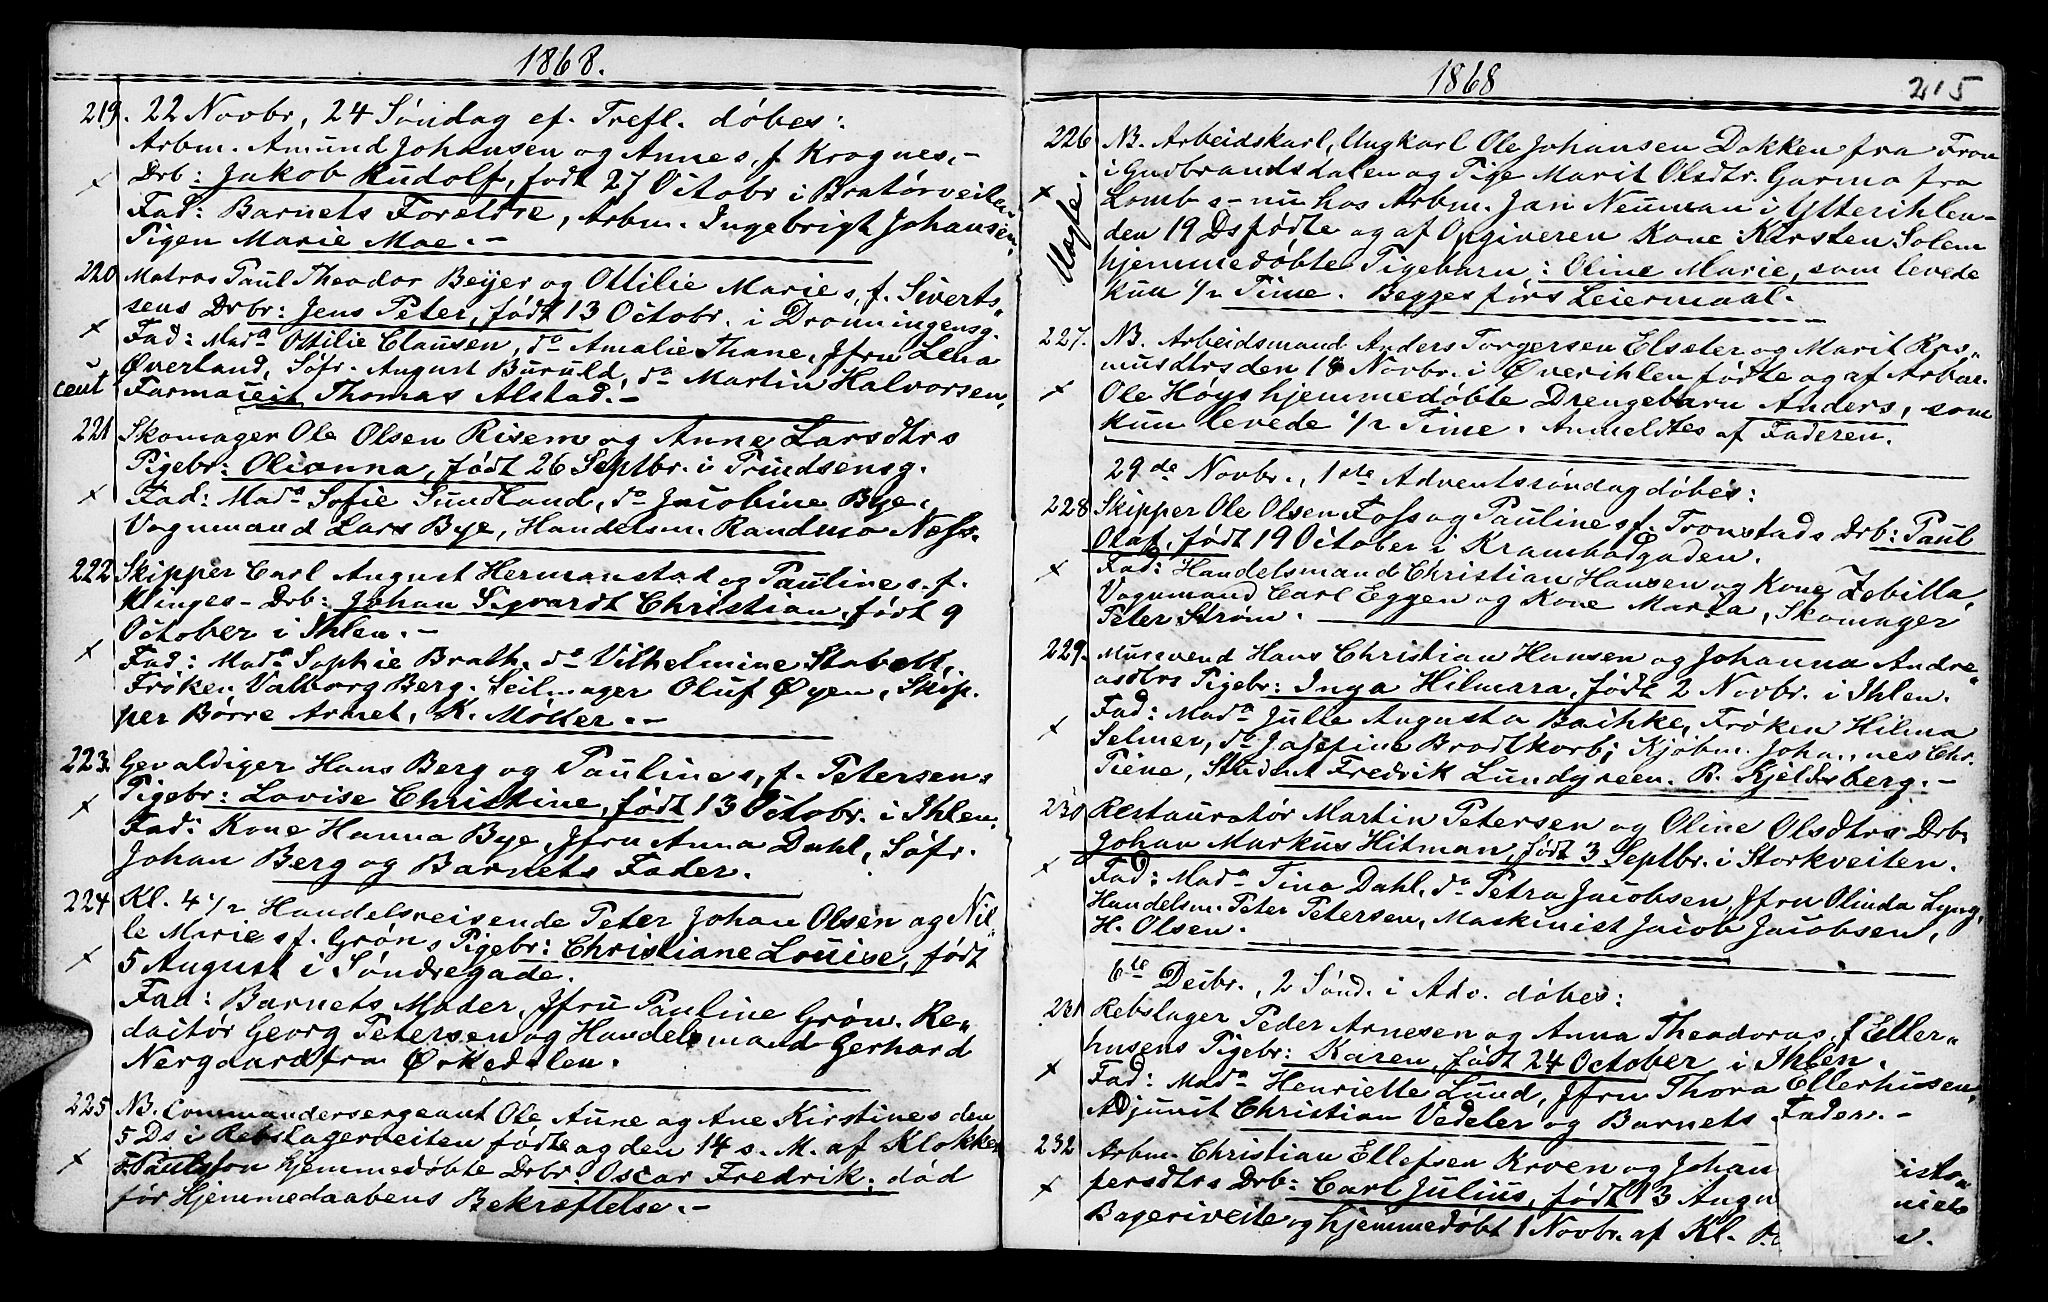 1868.
219. 22 Novbr, 24 Søndag ef. Trefl. døbes:
Arbm. Amund Johansen og Annes, f. Krognes, -
Drb: Jakob Rudolf, født 27 Octobr i Bratørveiten
Fad: Barnets Forældre, Arbm. Ingebrigt Johansen,
Pigen Marie Moe. -
220 Matros Paul Theodor Beijer og Ottilie Marie s, f. Siverts-
sens Drbr: Jens Peter, født 13 Octobr. i Dronningensg.
Fad: Mada Ottilie Clausen, do Amalie Thane, Jfru Lena
Øverland, Søfr. August Buruld, do Martin Halvorsen,
cent Farmaceit Thomas Alstad. -
221 Skomager Ole Olsen Risem og Anne Larsdtrs
Pigebr: Olianna, født 26 Septbr. i Trindsensg.
Fad: Mada Sofie Sundland, do Jacobine Bye,
Vognmand Lars Bye, Handelsm. Randmo Næss.
222 Skipper Carl August Hermanstad og Pauline s. f.
Klinges - Drb: Johan Sigvardt Christian, født 9
October i Ihlen. -
Fad: Mada Sophie Brath, do Vilhelmine Stabell,
Frøken Valborg Berg. Seilmager Oluf Øyen, Skip-
per Børre Armet, K. Møller. -
223. Gevaldiger Hans Berg og Pauline s, f. Petersens
Pigebr: Lovise Christine, født 13 Octobr. i Ihlen.
Fad: Kone Hanna Bye, Jfru Anna Dahl, Søfr.
Johan Berg og Barnets Fader.
224 Kl. 4 1/2 Handelsreisende Peter Johan Olsen og Nil-
le Marie s f. Grøns Pigebr: Christiane Louise, født
5 August i Søndregade.
Fad: Barnets Moder, Jfru Pauline Grøn. Re-
dactør Georg Petersen og Handelsmand Gerhard
Nergaard fra Ørkedalen.
225 NB. Commandersergeant Ole Aune og Ane Kirstines den
5 Ds i Rebslagerveiten fødte og den 14 s. M. af Klokker
Paulsson hjemmedøbte Drbr: Oscar Fredrik, død
før Hjemmedaabens Bekræftelse. -
1868
215
226 NB. Arbeidskarl, Ungkarl Ole Johansen Dokken fra Fron
i Gudbrandsdalen og Pige Marit Olsdtr. Garmo fra
Lomb s - nu hos Arbm. Jan Neuman i Ytterihlen -
den 19 Ds fødte og af Opgiveren Kone Kirsten Solem
hjemmedøbte Pigebarn: Oline Marie, som levede
kun 1/2 Time. Begges førs Leiermaal.
Uægte.
227. NB. Arbeidsmand Anders Torgersen Elsæter og Marit Ras-
musdtrs den 18 Novbr. i Øverihlen fødte og af Arbkr.
Ole Høys hjemmedøbte Drengebarn Anders, som
kun levede 1/2 Time. Anmeldtes af Faderen.
29de Novbr., 1ste Adventssøndag døbes:
228 Skipper Ole Olsen Foss og Pauline s f. Tronstads Drb: Paul
Olaf, født 19 October i Krambodgaden.
Fad: Handelsmand Christian Hansen og Kone Zebilla,
Vognmand Carl Eggen og Kone Marta, Skomager
Peter Strøm.
229. Mursvend Hans Christian Hansen og Johanna Andre-
asdtrs Pigebr: Inga Hilmarra, født 2 Novbr. i Ihlen.
Fad: Mada Julle Augusta Baihke, Frøken Hilma
Selmer, do Josefine Brodtkorb; Kjøbm. Johannes Chr.
Piene, Student Fredrik Lundgreen. R. Kjeldsberg. -
230 Restauratør Martin Petersen og Oline Olsdtrs Drb.
Johan Markus Hitman, født 3 Septbr. i Storkveiten.
Fad: Mada Tina Dahl, do Petra Jacobsen, Jfru Olinda Lyng,
Handelsm. Peter Petersen, Maskinist Jacob Jacobsen,
H. Olsen.
6te Decbr., 2 Sønd. i Adv. døbes:
231 Rebslager Peder Arnesen og Anna Theodora s, f Eller-
husens Pigebr: Karen, født 24 October i Ihlen.
Fad: Mada Henriette Lund, Jfru Thora Ellerhusen,
Adjunct Christian Vedeler og Barnets Fader. -
232 Arbm. Christian Ellefsen Kroen og Johan
persdtrs Drb: Carl Julius, født 13 Augu
Bageriveite og hjemmedøbt 1 Novbr. af Kl.